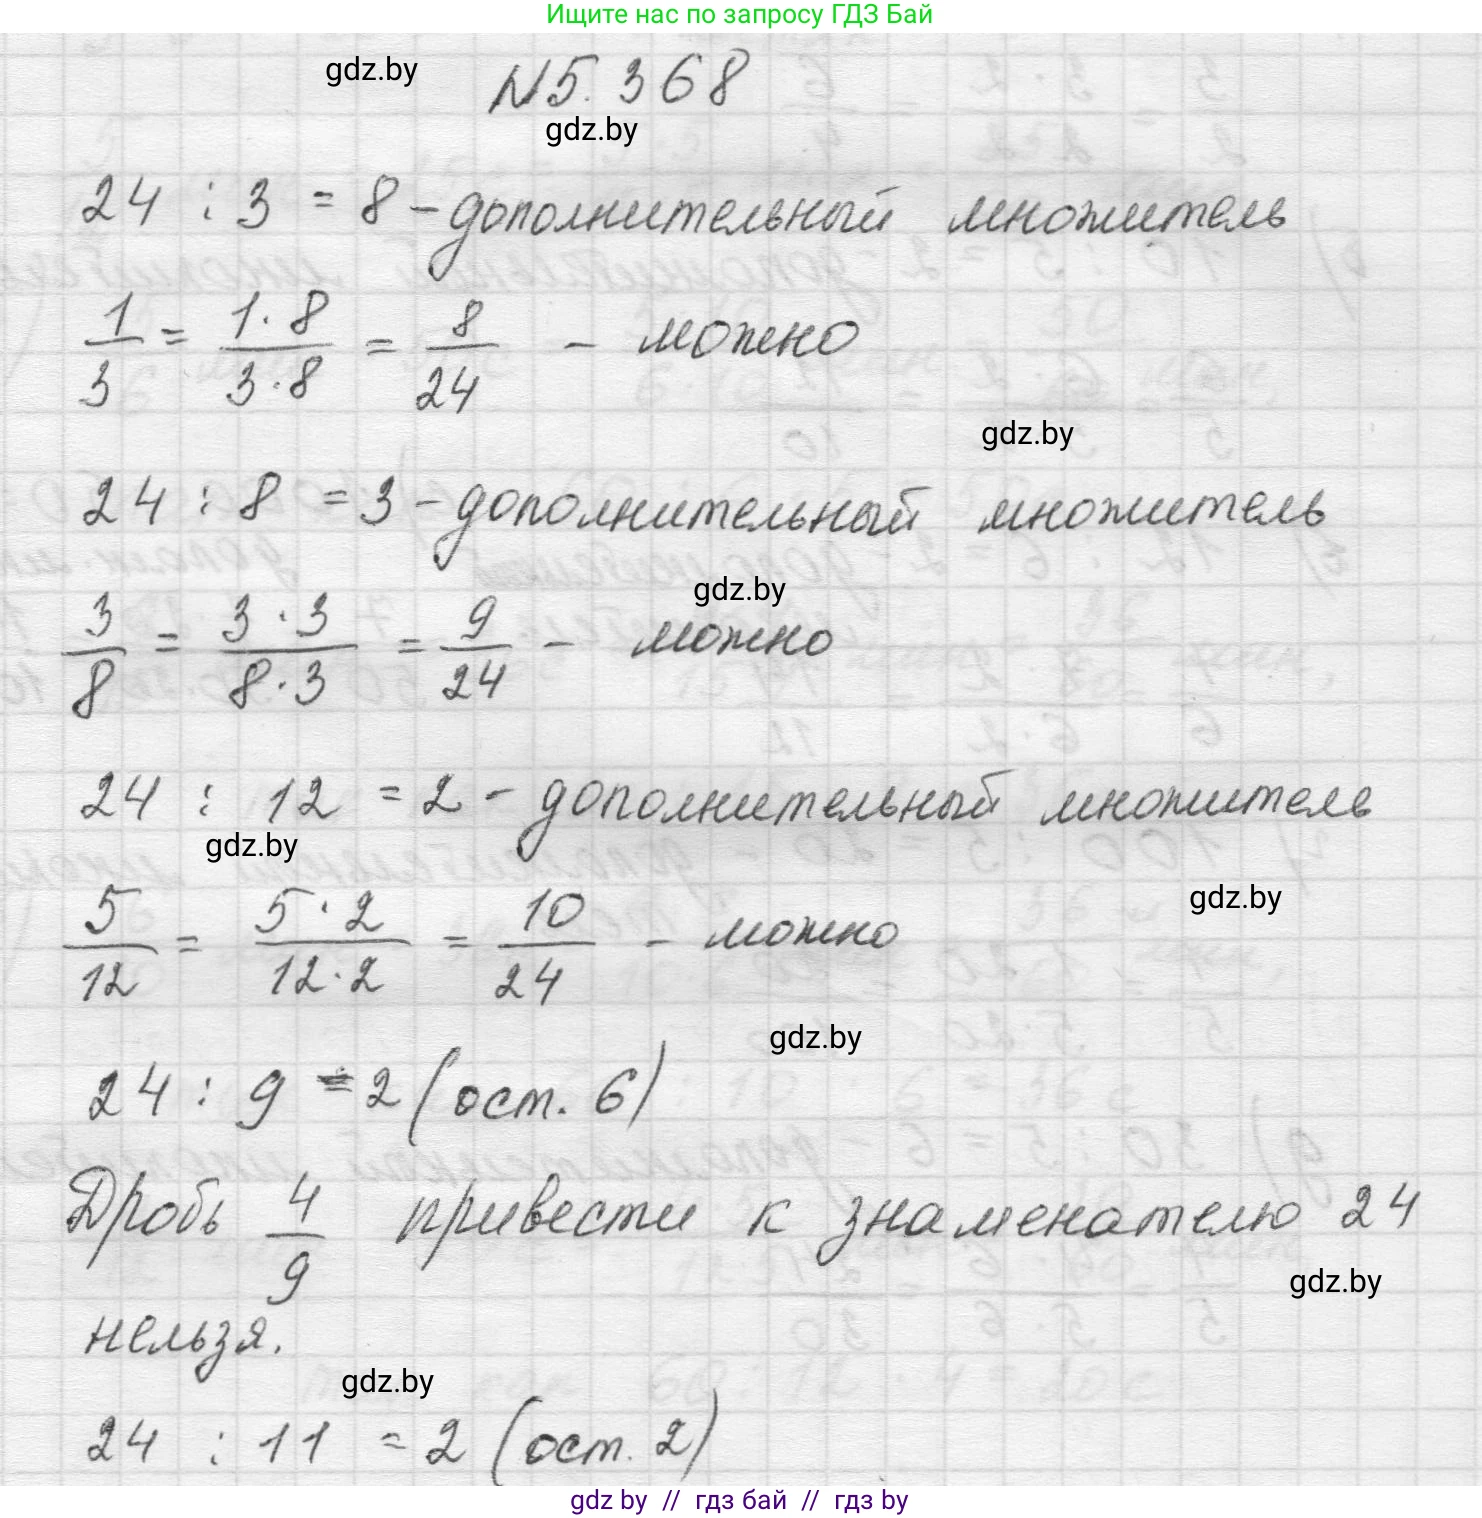 Ищите нас по запросу ГДЗ Бай
gdz.by
N5.368
gdz.by
24 : 3 = 8 – дополнительный множитель
1/3 = 1·8/3·8 = 8/24 – можно
gdz.by
24 : 8 = 3 – дополнительный множитель
gdz.by
3/8 = 3·3/8·3 = 9/24 – можно
24 : 12 = 2 – дополнительный множитель
gdz.by
gdz.by
5/12 = 5·2/12·2 = 10/24 – можно
gdz.by
24 : 9 = 2 (ост. 6)
Дробь 4/9 привести к знаменателю 24
gdz.by
нельзя.
gdz.by
24 : 11 = 2 (ост. 2)
gdz by // гдз бай // гдз by